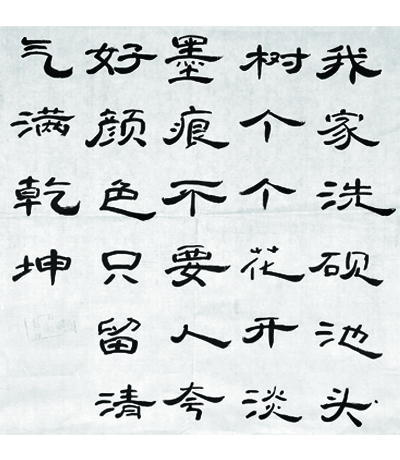 我家洗砚池头
树个个花开淡
墨痕不要人夸
好颜色只留清
气满乾坤